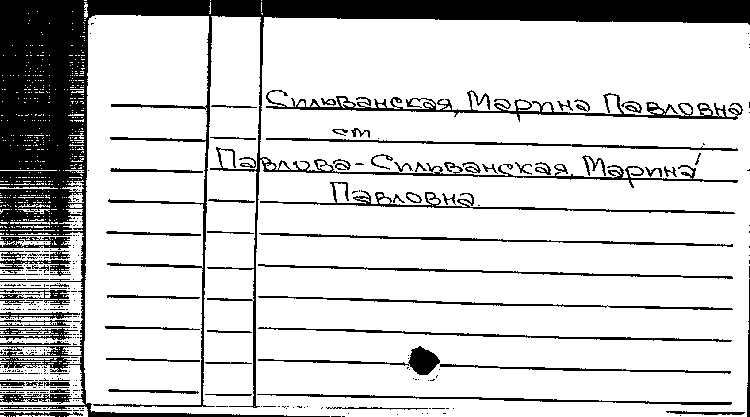 Сильванская, Марина Павловна
см.
Павлова-Сильванская, Марина
Павловна.